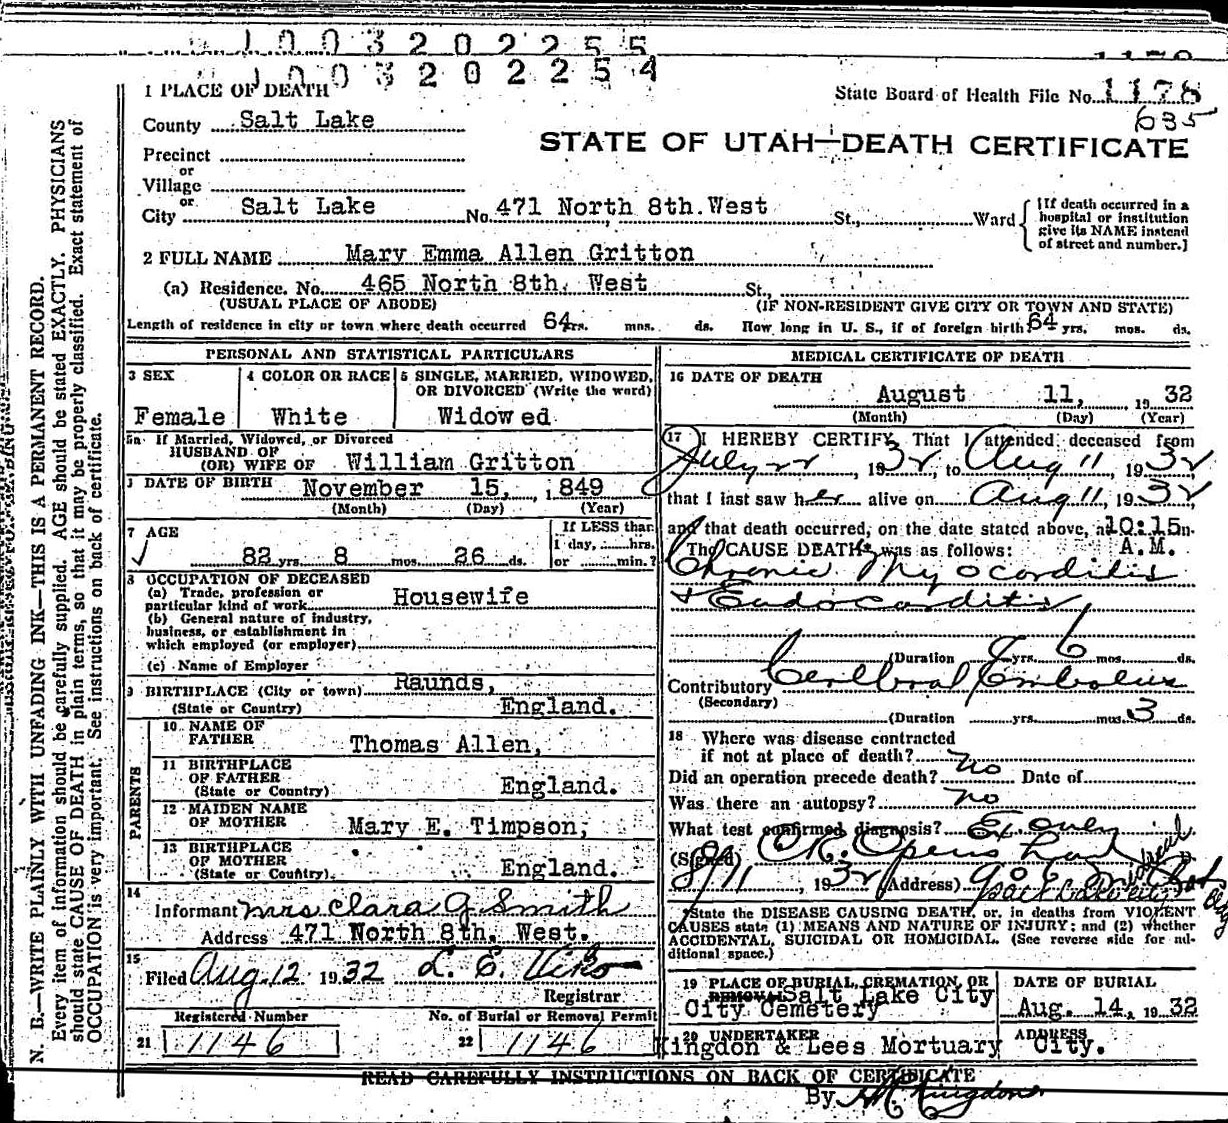 1003202255
1003202254
1 PLACE OF DEATH
State Board of Health File No. 1178
635
County Salt Lake
STATE OF UTAH—DEATH CERTIFICATE
Precinct
or
Village
or
City Salt Lake No. 471 North 8th. West St., Ward
[If death occurred in a hospital or institution give its NAME instead of street and number.]
2 FULL NAME Mary Emma Allen Gritton
(a) Residence. No. 465 North 8th. West St.,
(USUAL PLACE OF ABODE) (IF NON-RESIDENT GIVE CITY OR TOWN AND STATE)
Length of residence in city or town where death occurred 64 yrs. mos. ds. How long in U. S., if of foreign birth? 64 yrs. mos. ds.
PERSONAL AND STATISTICAL PARTICULARS
3 SEX
Female
4 COLOR OR RACE
White
5 SINGLE, MARRIED, WIDOWED,
OR DIVORCED (Write the word)
Widowed
5a If Married, Widowed, or Divorced
HUSBAND OF
(OR) WIFE OF William Gritton
DATE OF BIRTH November 15, 1849
(Month) (Day) (Year)
7 AGE
82 yrs. 8 mos. 26 ds.
If LESS than
1 day, hrs.
or min.?
8 OCCUPATION OF DECEASED
(a) Trade, profession or
particular kind of work Housewife
(b) General nature of industry,
business, or establishment in
which employed (or employer)
(c) Name of Employer
9 BIRTHPLACE (City or town) Raunds,
(State or Country) England.
PARENTS
10 NAME OF
FATHER Thomas Allen,
11 BIRTHPLACE
OF FATHER
(State or Country) England.
12 MAIDEN NAME
OF MOTHER Mary E. Timpson,
13 BIRTHPLACE
OF MOTHER
(State or Country) England.
14
Informant Mrs Clara G. Smith
Address 471 North 8th. West.
15
Filed Aug. 12 1932 L. E. Viko
Registrar
Registered Number No. of Burial or Removal Permit
21 1146 22 1146
MEDICAL CERTIFICATE OF DEATH
16 DATE OF DEATH
August 11, 1932
(Month) (Day) (Year)
17 I HEREBY CERTIFY, That I attended deceased from
July 22, 1932, to Aug 11 1932
that I last saw her alive on Aug 11, 1932
and that death occurred, on the date stated above, at 10:15 m.
A.M.
The CAUSE DEATH was as follows:
Chronic Myocarditis
+ Endocarditis
(Duration yrs. 6 mos. ds.
Contributory Cerebral Embolus
(Secondary)
(Duration yrs. mos. 3 ds.
18 Where was disease contracted
if not at place of death? no
Did an operation precede death? Date of
Was there an autopsy? no
What test confirmed diagnosis?
(Signed) C. R. Openshaw
8/11, 1932 (Address) 906
Salt Lake City
State the DISEASE CAUSING DEATH, or, in deaths from VIOLENT
CAUSES state (1) MEANS AND NATURE OF INJURY; and (2) whether
ACCIDENTAL, SUICIDAL OR HOMICIDAL. (See reverse side for additional space.)
19 PLACE OF BURIAL, CREMATION, OR
REMOVAL Salt Lake City
City Cemetery
DATE OF BURIAL
Aug. 14, 1932
20 UNDERTAKER
Kingdon & Lees Mortuary
ADDRESS
City.
READ CAREFULLY INSTRUCTIONS ON BACK OF CERTIFICATE
By Kingdon
N. B.—WRITE PLAINLY WITH UNFADING INK—THIS IS A PERMANENT RECORD.
Every item of information should be carefully supplied. AGE should be stated EXACTLY. PHYSICIANS
should state CAUSE OF DEATH in plain terms, so that it may be properly classified. Exact statement of
OCCUPATION is very important. See instructions on back of certificate.